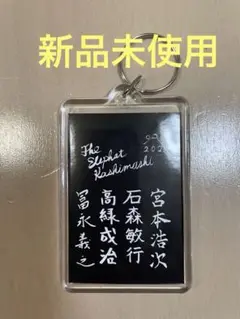 新品未使用
The
Elephant
Kashimashi
宮本浩次
石森敏行
高緑成治
冨永義之